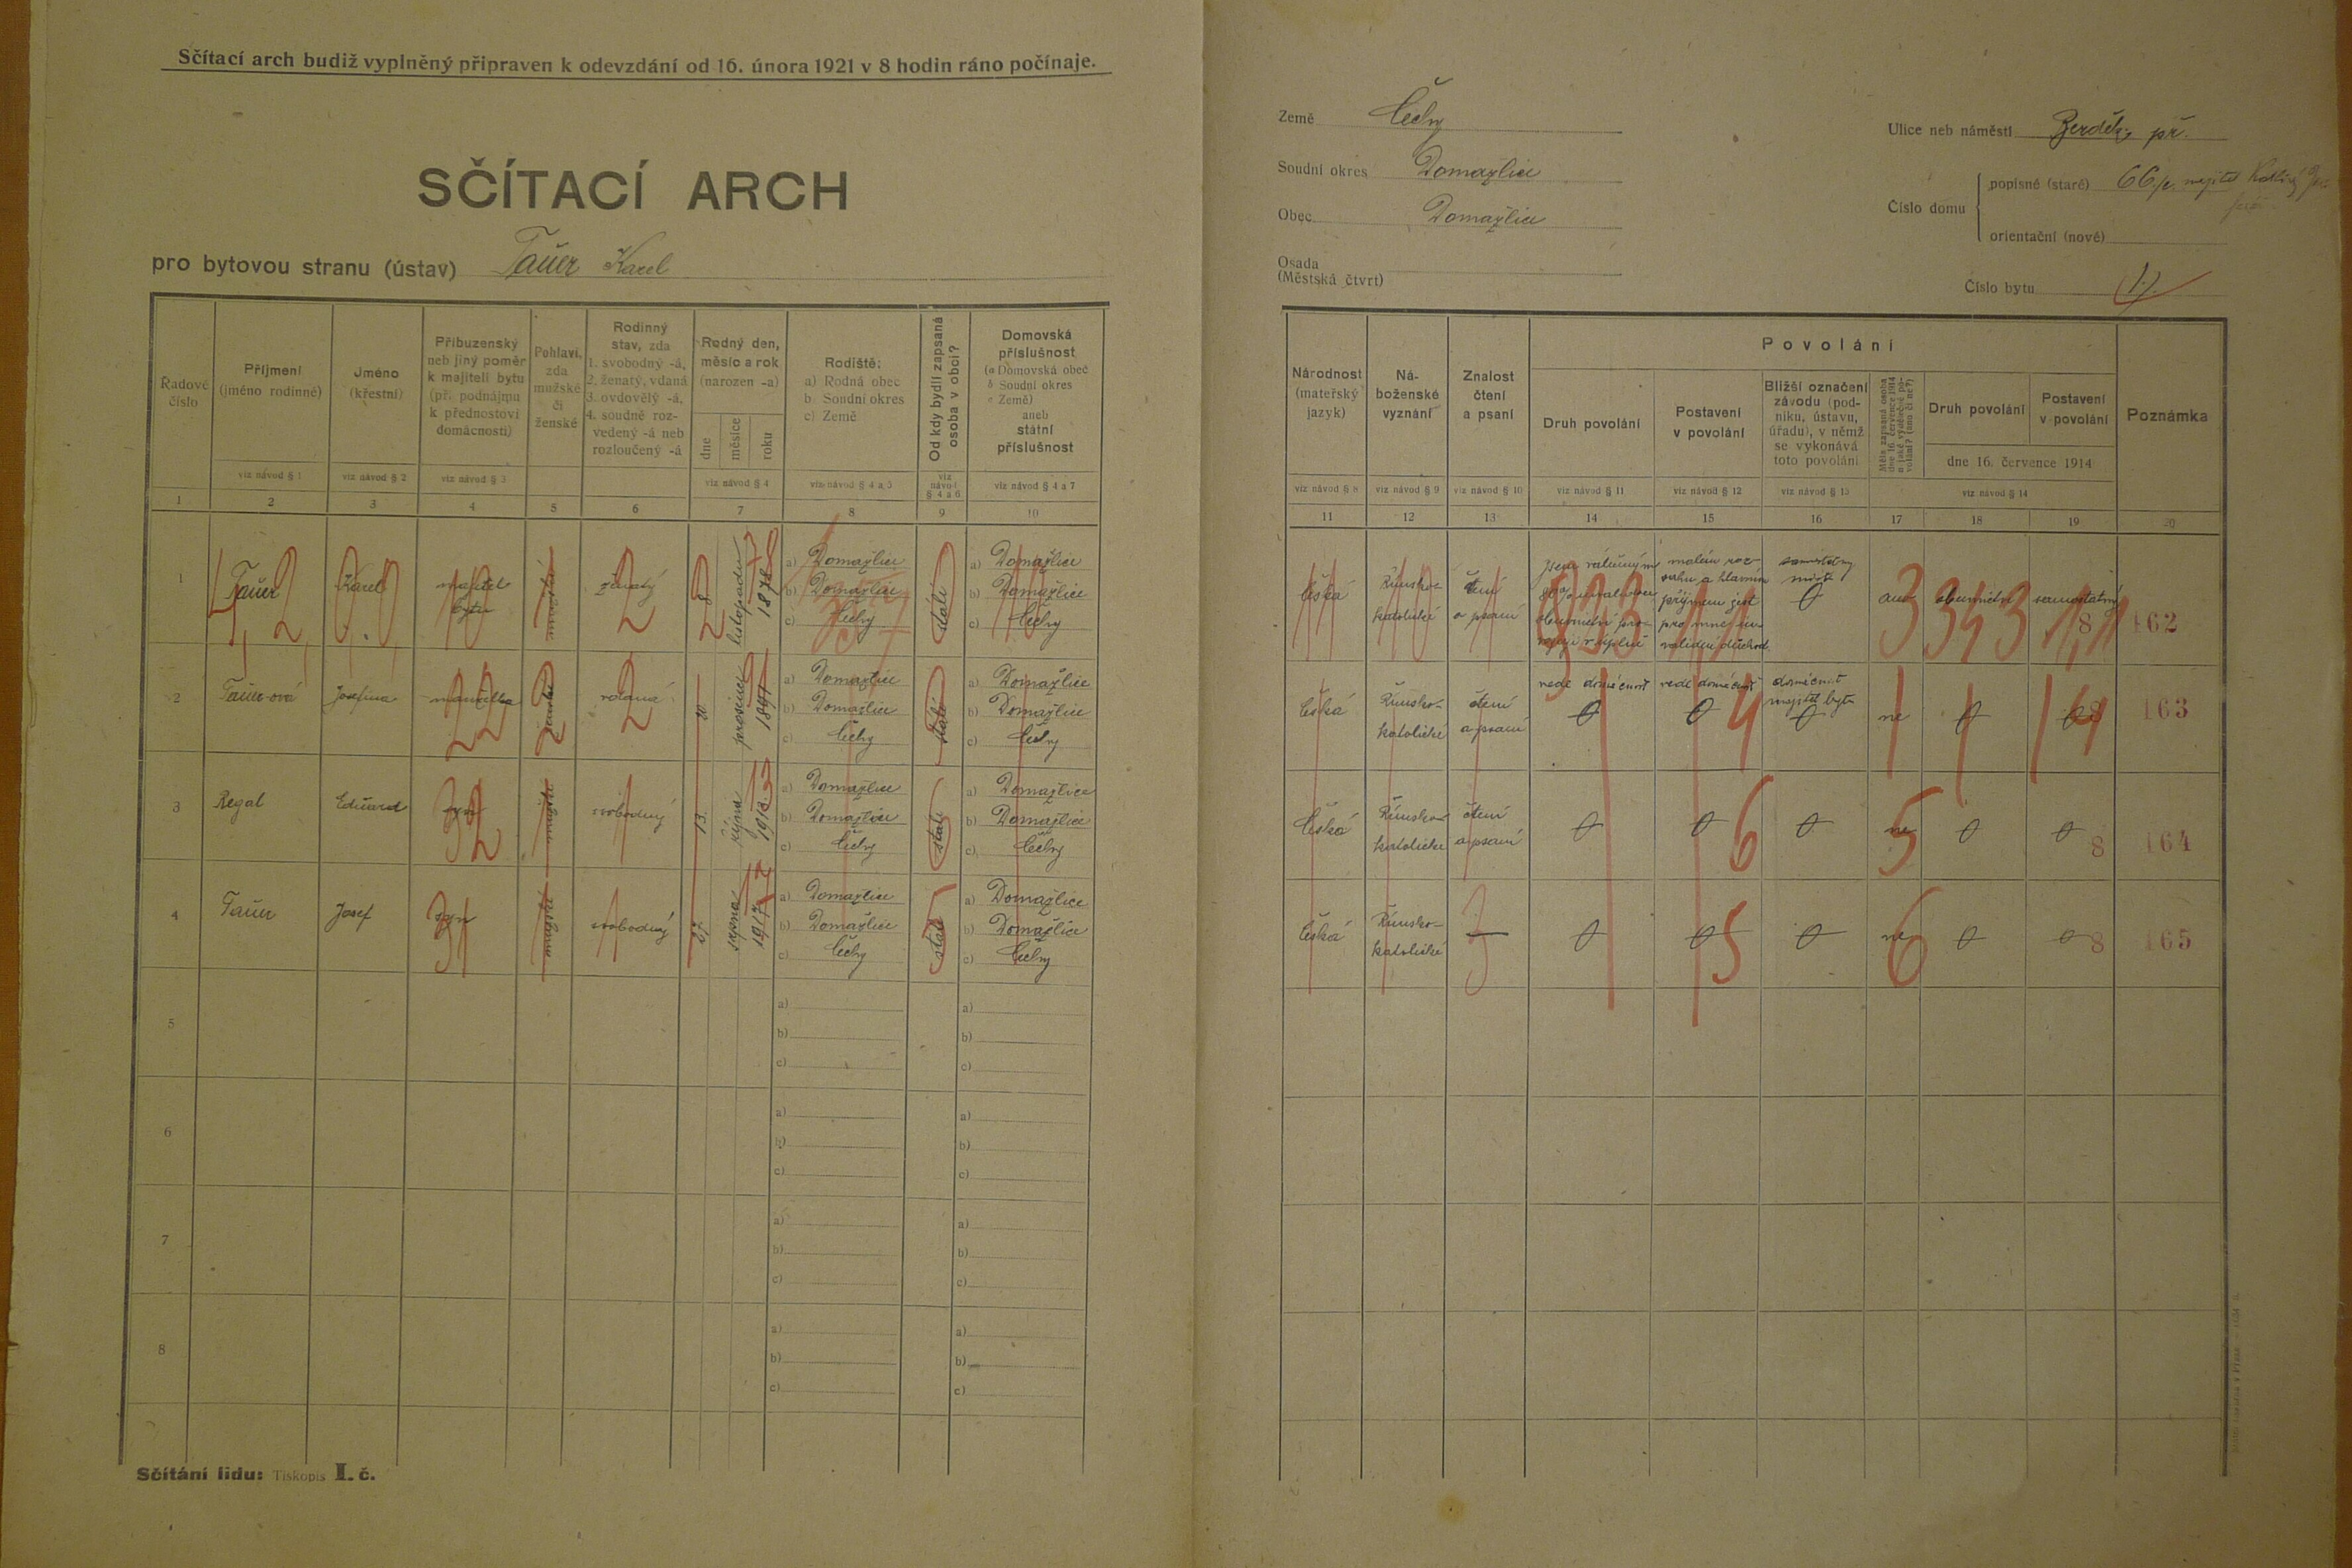 Sčítací arch budiž vyplněný připraven k odevzdání od 16. února 1921 v 8 hodin ráno počínaje.
SČÍTACÍ ARCH
pro bytovou stranu (ústav) Tauer Karel
Řadové číslo
Příjmení (jméno rodinné)
Jméno (křestní)
Příbuzenský neb jiný poměr k majiteli bytu (při podnájmu k přednostovi domácnosti)
Pohlaví, zda mužské či ženské
Rodinný stav, zda
1. svobodný -á,
2. ženatý, vdaná
3. ovdovělý -á,
4. soudně rozvedený -á neb rozloučený -á
Rodný den, měsíc a rok (narozen -a)
dne měsíce roku
Rodiště:
a) Rodná obec
b) Soudní okres
c) Země
Od kdy bydlí zapsaná osoba v obci?
Domovská příslušnost
(a Domovská obec
b Soudní okres
c Země)
aneb
státní příslušnost
viz návod § 1
viz návod § 2
viz návod § 3
viz návod § 4
viz návod § 4 a 5
viz návod § 4 a 6
viz návod § 4 a 7
1 2 3 4 5 6 7 8 9 10
1 Tauer Karel majitel bytu mužské ženatý 28 listopadu 1878
a) Domažlice
b) Domažlice
c) Čechy
a) Domažlice
b) Domažlice
c) Čechy
2 Tauer-ová Josefina manželka ženské vdaná prosince
a) Domažlice
b) Domažlice
c) Čechy
a) Domažlice
b) Domažlice
c) Čechy
3 Regal Eduard syn mužské svobodný 13. října 1913
a) Domažlice
b) Domažlice
c) Čechy
a) Domažlice
b) Domažlice
c) Čechy
4 Tauer Josef syn mužské svobodný srpna 1917
a) Domažlice
b) Domažlice
c) Čechy
a) Domažlice
b) Domažlice
c) Čechy
5
a)
b)
c)
a)
b)
c)
6
a)
b)
c)
a)
b)
c)
7
a)
b)
c)
a)
b)
c)
8
a)
b)
c)
a)
b)
c)
Sčítání lidu: Tiskopis I. č.
Země Čechy
Soudní okres Domažlice
Obec Domažlice
Osada (Městská čtvrt)
Ulice neb náměstí př.
Číslo domu
popisné (staré) 66
orientační (nové)
Číslo bytu 1).
Národnost (mateřský jazyk)
Náboženské vyznání
Znalost čtení a psaní
Povolání
Druh povolání
Postavení v povolání
Bližší označení závodu (podniku, ústavu, úřadu), v němž se vykonává toto povolání
Druh povolání
Postavení v povolání
dne 16. července 1914
Poznámka
viz návod § 8
viz návod § 9
viz návod § 10
viz návod § 11
viz návod § 12
viz návod § 13
viz návod § 14
11 12 13 14 15 16 17 18 19 20
Česká Římsko-katolické čtení a psaní ano 162
Česká Římsko-katolické čtení a psaní vede domácnost vede domácnost domácnost majitel bytu ne 0 163
Česká Římsko-katolické čtení a psaní 0 0 0 ne 0 0 8 164
Česká Římsko-katolické — 0 0 0 ne 0 0 8 165